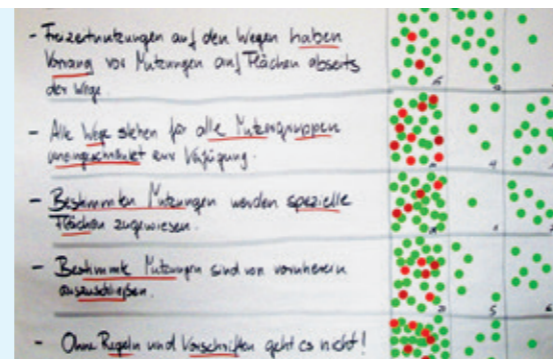 - Freizeitnutzungen auf den Wegen haben
Vorrang vor Nutzungen auf Flächen abseits
der Wege.
- Alle Wege stehen für alle Nutzergruppen
uneingeschränkt zur Verfügung.
- Bestimmten Nutzungen werden spezielle
Flächen zugewiesen.
- Bestimmte Nutzungen sind von vornherein
auszuschließen.
- Ohne Regeln und Vorschriften geht es nicht!